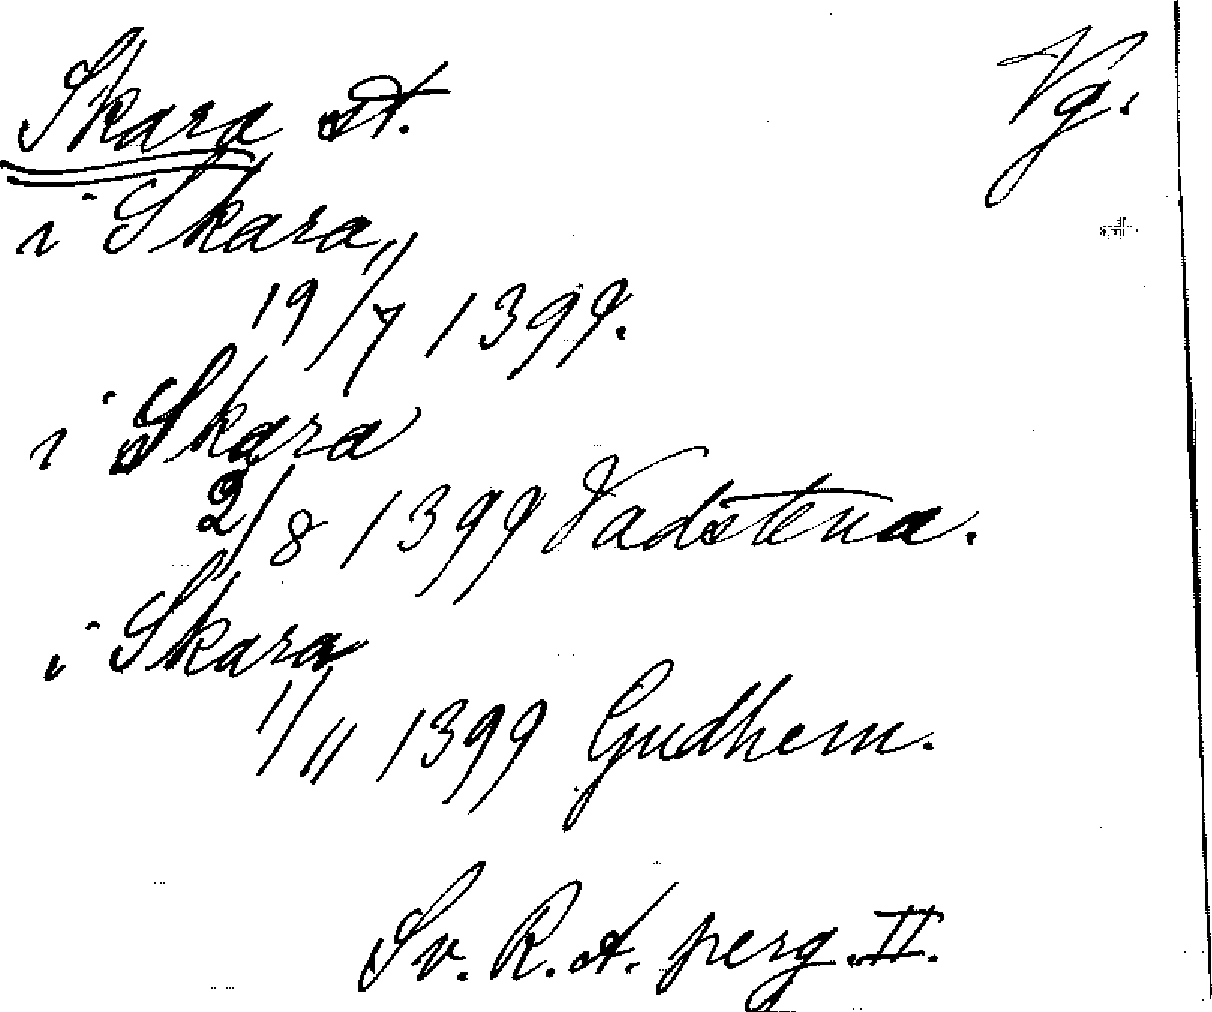 Skara st. Vg.
i Skara,
19/7 1399.
i Skara
2/8 1399 Vadstena.
i Skara
1/11 1399 Gudhem.
Sv. R. A. perg. II.